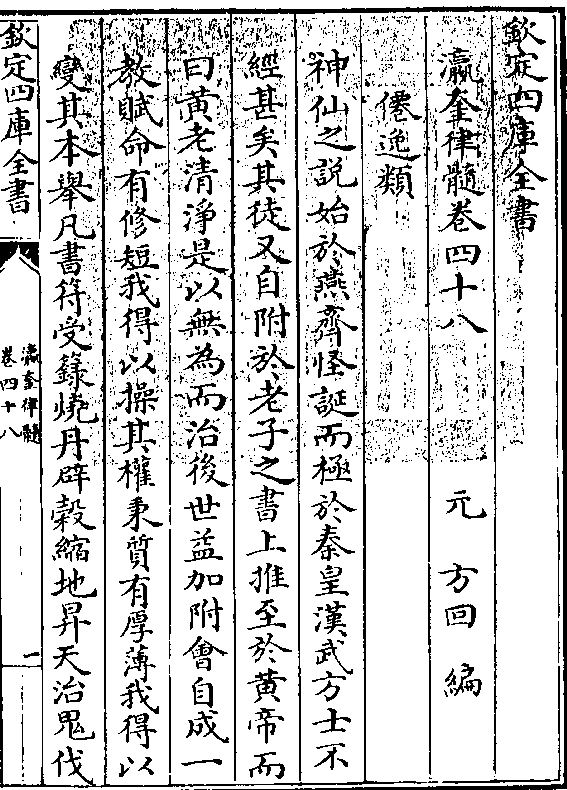 欽定四庫全書
瀛奎律髓卷四十八
元 方回 編
僊逸類
神仙之説始於燕齊怪誕而極於秦皇漢武方士不
經甚矣其徒又自附於老子之書上推至於黄帝而
曰黄老清淨是以無為而治後世益加附會自成一
教賦命有修短我得以操其權秉質有厚薄我得以
變其本舉凡書符受籙燒丹辟穀縮地昇天治鬼伐
欽定四庫全書
瀛奎律髓
卷四十八
一